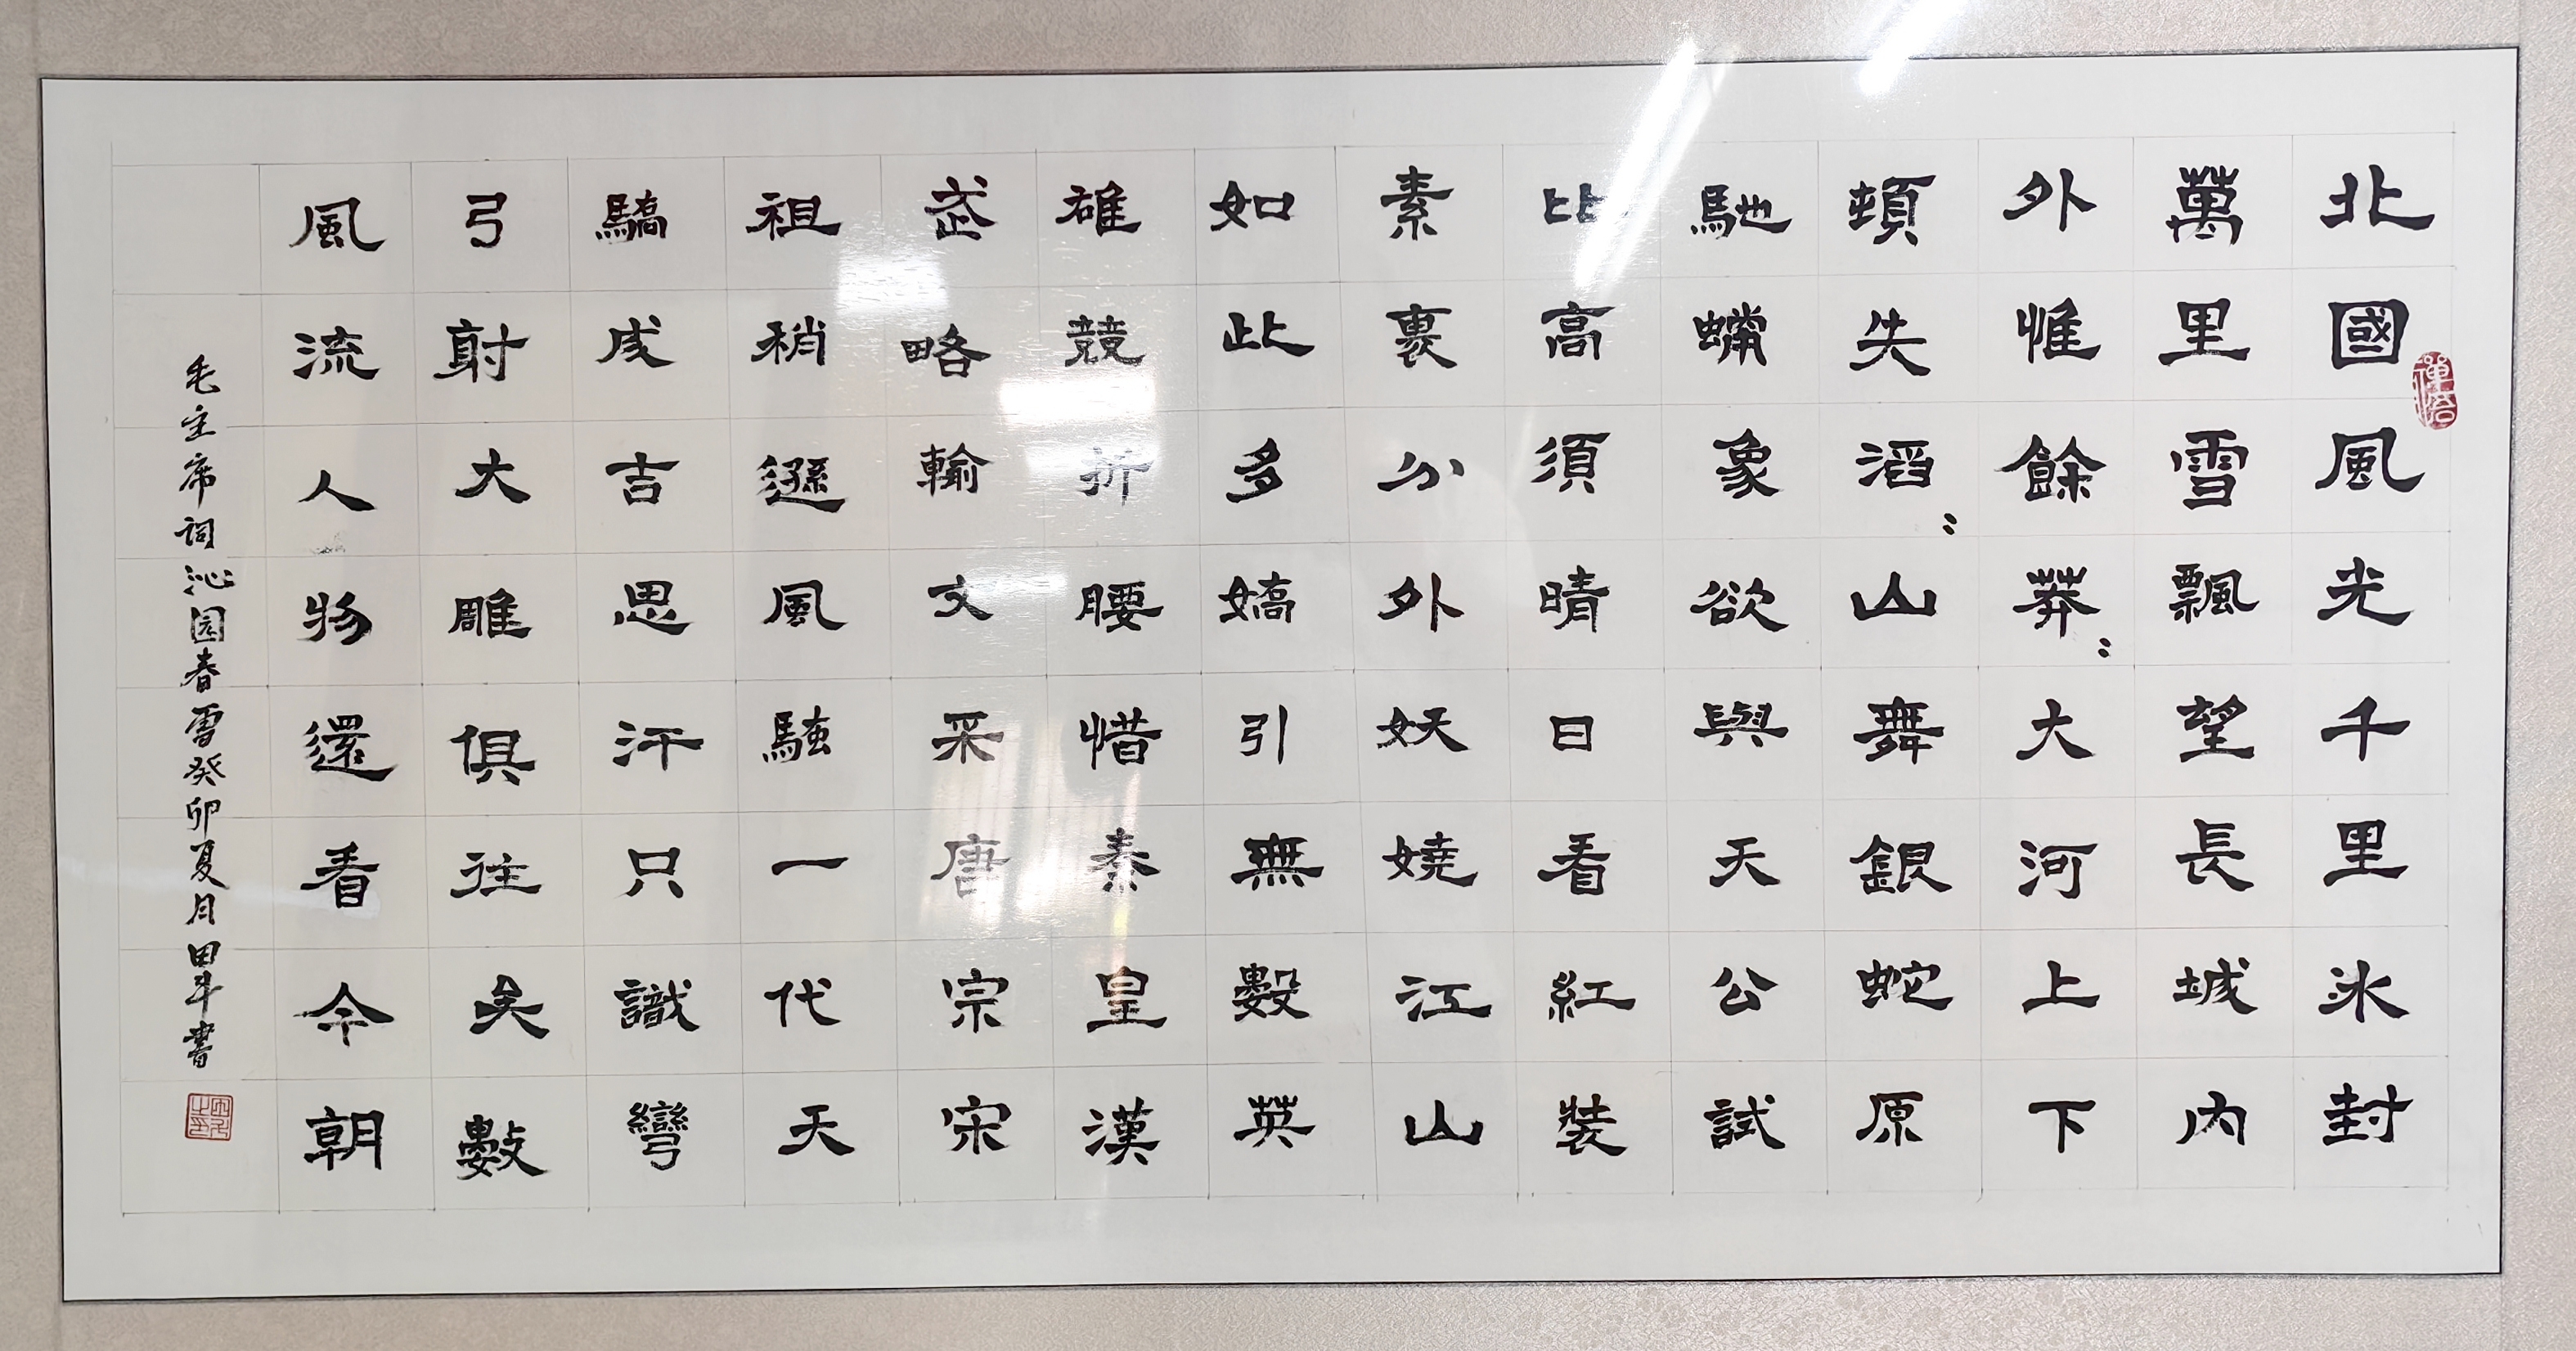 北國風光千里冰封
萬里雪飄望長城內
外惟餘莽〻大河上下
頓失滔〻山舞銀蛇原
馳蠟象欲與天公試
比高須晴日看紅裝
素裹分外妖嬈江山
如此多嬌引無數英
雄競折腰惜秦皇漢
武略輸文采唐宗宋
祖稍遜風騷一代天
驕成吉思汗只識彎
弓射大雕俱往矣數
風流人物還看今朝
毛主席词沁园春雪癸卯夏月田斗書